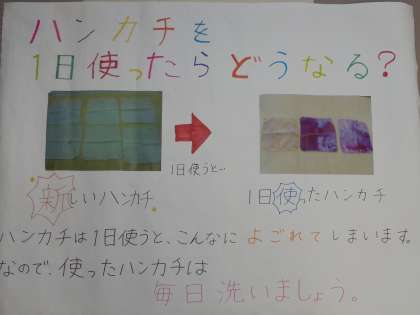 ハンカチを
1日使ったらどうなる?
1日使うと…
新しいハンカチ
1日使ったハンカチ
ハンカチは1日使うと、こんなによごれてしまいます。
なので、使ったハンカチは
毎日洗いましょう。